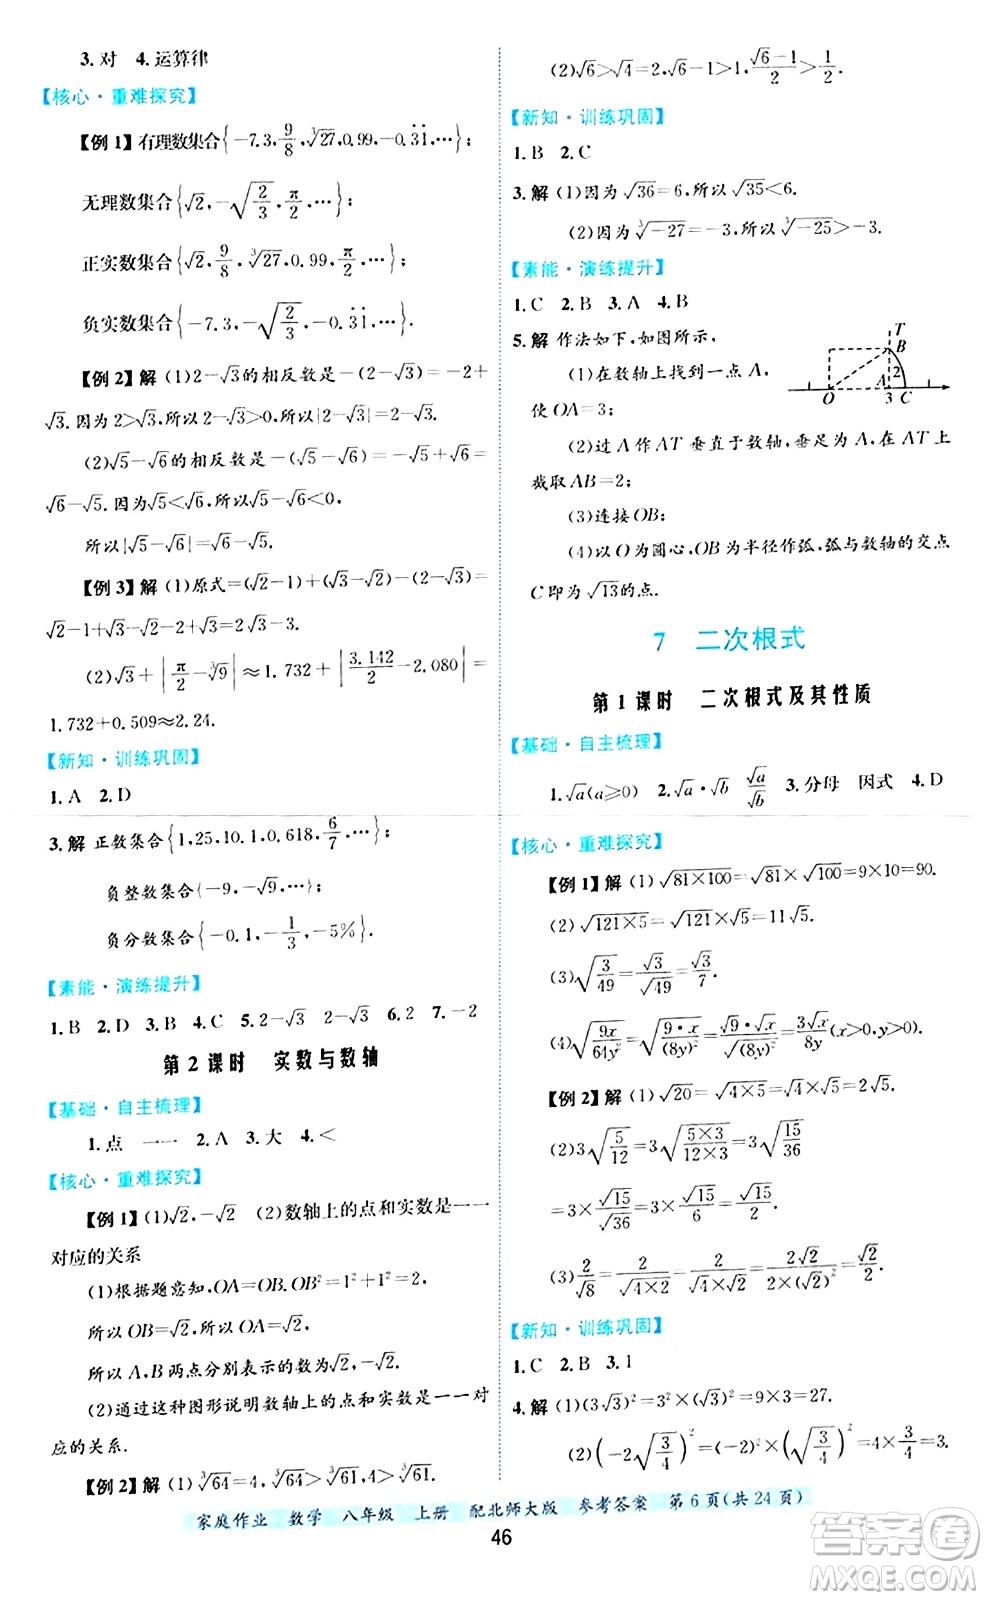 3.对 4.运算律
【核心·重难探究】
【例1】有理数集合{-7.3,9/8,∛27,0.99,-0.3̇1̇,…};
无理数集合{√2,-√(2/3),π/2,…};
正实数集合{√2,9/8,∛27,0.99,π/2,…};
负实数集合{-7.3,-√(2/3),-0.3̇1̇,…}.
【例2】解 (1)2-√3的相反数是-(2-√3)=-2+
√3.因为2>√3,所以2-√3>0,所以|2-√3|=2-√3.
(2)√5-√6的相反数是-(√5-√6)=
√6-√5.因为√5<√6,所以√5-√6<0,
所以|√5-√6|=√6-√5.
【例3】解 (1)原式=(√2-1)+(√3-√2)=
√2-1+√3-√2=√3-1.
(2)√3+|π/2-∛9|≈1.732+|3.142/2-2.080|=
1.732+0.509≈2.24.
【新知·训练巩固】
1.A 2.D
3.解 正数集合{1,25,10.1,0.618,6/7,…};
负整数集合{-9,-√9,…};
负分数集合{-0.1,-1/3,-5%}.
【素能·演练提升】
1.B 2.D 3.B 4.C 5.2-√3 2-√3 6.2 7.-2
第2课时 实数与数轴
【基础·自主梳理】
1.点 一一 2.A 3.大 4.<
【核心·重难探究】
【例1】(1)√2,-√2 (2)数轴上的点和实数是一一
对应的关系
(1)根据题意知,OA=OB.OB²=1²+1²=2,
所以OB=√2,所以OA=√2,
所以A,B两点分别表示的数为√2,-√2.
(2)通过这种图形说明数轴上的点和实数是一一对
应的关系.
【例2】解 (1)∛64=4,∛64>∛61,4>∛61.
(2)√6>√4=2,√6-1>1,(√6-1)/2>1/2.
【新知·训练巩固】
1.B 2.C
3.解 (1)因为√36=6,所以√35<6.
(2)因为∛-27=-3,所以∛-25>-3.
【素能·演练提升】
1.C 2.B 3.A 4.B
5.解 作法如下,如图所示.
(1)在数轴上找到一点A,
使OA=3;
T
B
2
O A 3 C
(2)过A作AT垂直于数轴,垂足为A,在AT上
截取AB=2;
(3)连接OB;
(4)以O为圆心,OB为半径作弧,弧与数轴的交点
C即为√13的点.
7 二次根式
第1课时 二次根式及其性质
【基础·自主梳理】
1.√a(a≥0) 2.√a·√b √a/√b 3.分母 因式 4.D
【核心·重难探究】
【例1】解 (1)√(81×100)=√81×√100=9×10=90.
(2)√(121×5)=√121×√5=11√5.
(3)√(3/49)=√3/√49=√3/7.
(4)√(9x/64y²)=√(9·x)/√(8y)²=√9·√x/√(8y)²=3√x/8y(x>0,y>0).
【例2】解 (1)√20=√(4×5)=√4×√5=2√5.
(2)3√(5/12)=3√((5×3)/(12×3))=3√(15/36)
=3×√15/√36=3×√15/6=√15/2.
(3)2/√8=2/√(4×2)=2/(√4×√2)=2√2/(2×(√2)²)=√2/2.
【新知·训练巩固】
1.C 2.B 3.1
4.解 (1)(3√3)²=3²×(√3)²=9×3=27.
(2)(-2√(3/4))²=(-2)²×(√(3/4))²=4×3/4=3.
家庭作业 数学 八年级 上册 配北师大版 参考答案 第6页(共24页)
46
作业帮
MXQE.COM